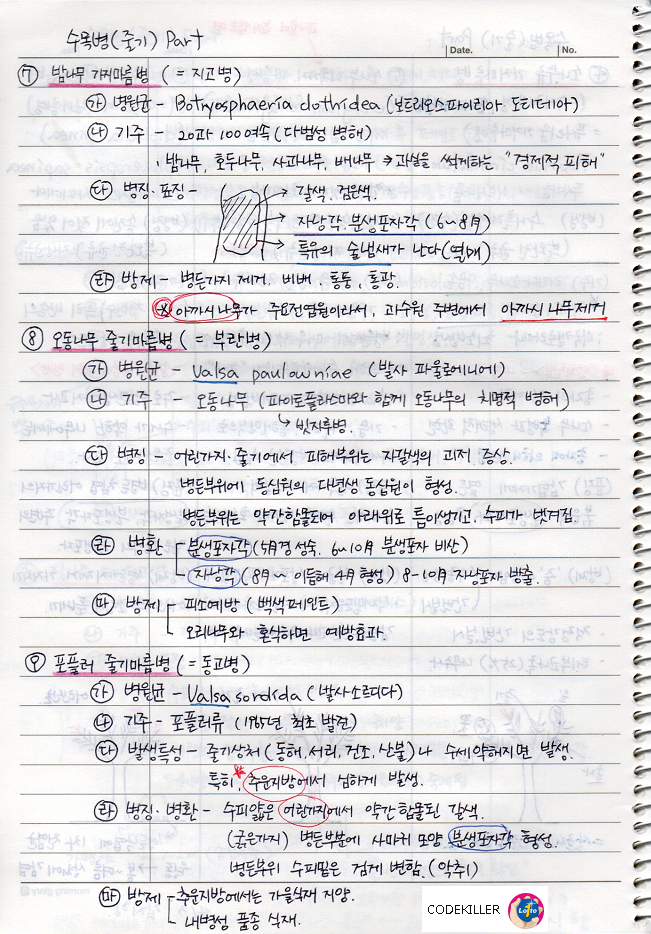 수목병(줄기) Part
Date.
No.
⑦ 밤나무 가지마름병 (= 지고병)
㉮ 병원균 - Botryosphaeria dothidea (보트리오스파이리아 도티데아)
㉯ 기주 - 20과 100여속 (다범성 병해)
밤나무, 호두나무, 사과나무, 배나무 → 과실을 썩게하는 "경제적 피해"
㉰ 병징·표징 -
← 갈색. 검은색.
→ 자낭각. 분생포자각 (6~8月)
→ 특유의 술냄새가 난다
㉱ 방제 - 병든가지 제거, 비배, 통풍, 통광.
※ 아까시 나무가 주요전염원이라서, 과수원 주변에서 아까시 나무제거
⑧ 오동나무 줄기마름병 (= 부란병)
㉮ 병원균 - Valsa paulowniae (발사 파울로니에)
㉯ 기주 - 오동나무 (파이토플라스마와 함께 오동나무의 치명적 병해)
↳ 빗자루병.
㉰ 병징 - 어린가지·줄기에서 피해부위는 자갈색의 괴저 증상.
병든부위에 동심원의 대형성 동심원이 형성.
병든부위는 약간함몰되어 아래위로 틈이생기고, 수피가 벗겨짐.
㉱ 병환
분생포자각 (5月경 성숙, 6~10月 분생포자 비산)
자낭각 (8月 ~ 이듬해 4月 형성) 8-10月 자낭포자 방출.
㉲ 방제
피소예방 (백색페인트)
오리나무와 혼식하면 예방효과
⑨ 포플러 줄기마름병 (= 동고병)
㉮ 병원균 - Valsa sordida (발사소르디다)
㉯ 기주 - 포플러류 (1785년 최초 발견)
㉰ 발생특성 - 줄기상처 (동해, 서리, 건조, 산불)나 수세약해지면 발생.
특히, 추운지방에서 심하게 발생.
㉱ 병징·병환 - 수피얇은 어린가지에서 약간함몰된 갈색.
(굵은가지) 병든부분에 사마귀 모양 분생포자각 형성.
병든부위 수피밑은 검게 변함. (악취)
㉲ 방제
추운지방에서는 가을식재 지양.
내병성 품종 식재.
CODEKILLER
Lotto